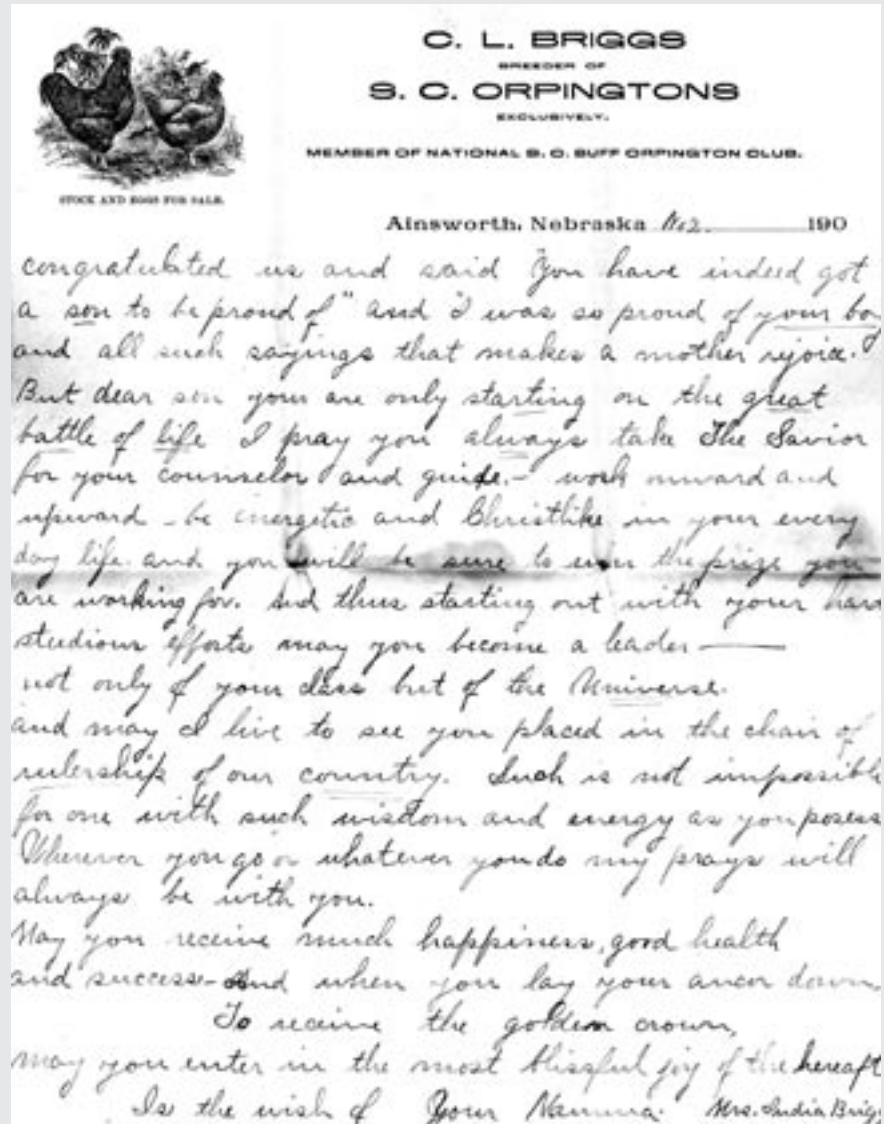 C. L. BRIGGS
BREEDER OF
S. C. ORPINGTONS
EXCLUSIVELY.
MEMBER OF NATIONAL S. C. BUFF ORPINGTON CLUB.
STOCK AND EGGS FOR SALE.
Ainsworth, Nebraska 190
congratulated us and said "You have indeed got
a son to be proud of" and "I was so proud of your boy
and all such sayings that makes a mother rejoice.
But dear son your are only starting on the great
battle of life I pray you always take The Savior
for your counselor and guide.- work onward and
upward - be energetic and Christlike in your every
day life. and you will be sure to win the prize you
are working for. And thus starting out with your hard
studious efforts may you become a leader —
not only of your class but of the Universe.
and may I live to see you placed in the chair of
rulership of our country. Such is not impossible
for one with such wisdom and energy as you posess
Wherever you go or whatever you do my prays will
always be with you.
May you receive much happiness, good health
and success - And when you lay your ancor down,
To receive the golden crown,
may you enter in the most blissful joy of the hereaft
Is the wish of Your Mamma. Mrs. India Brigg